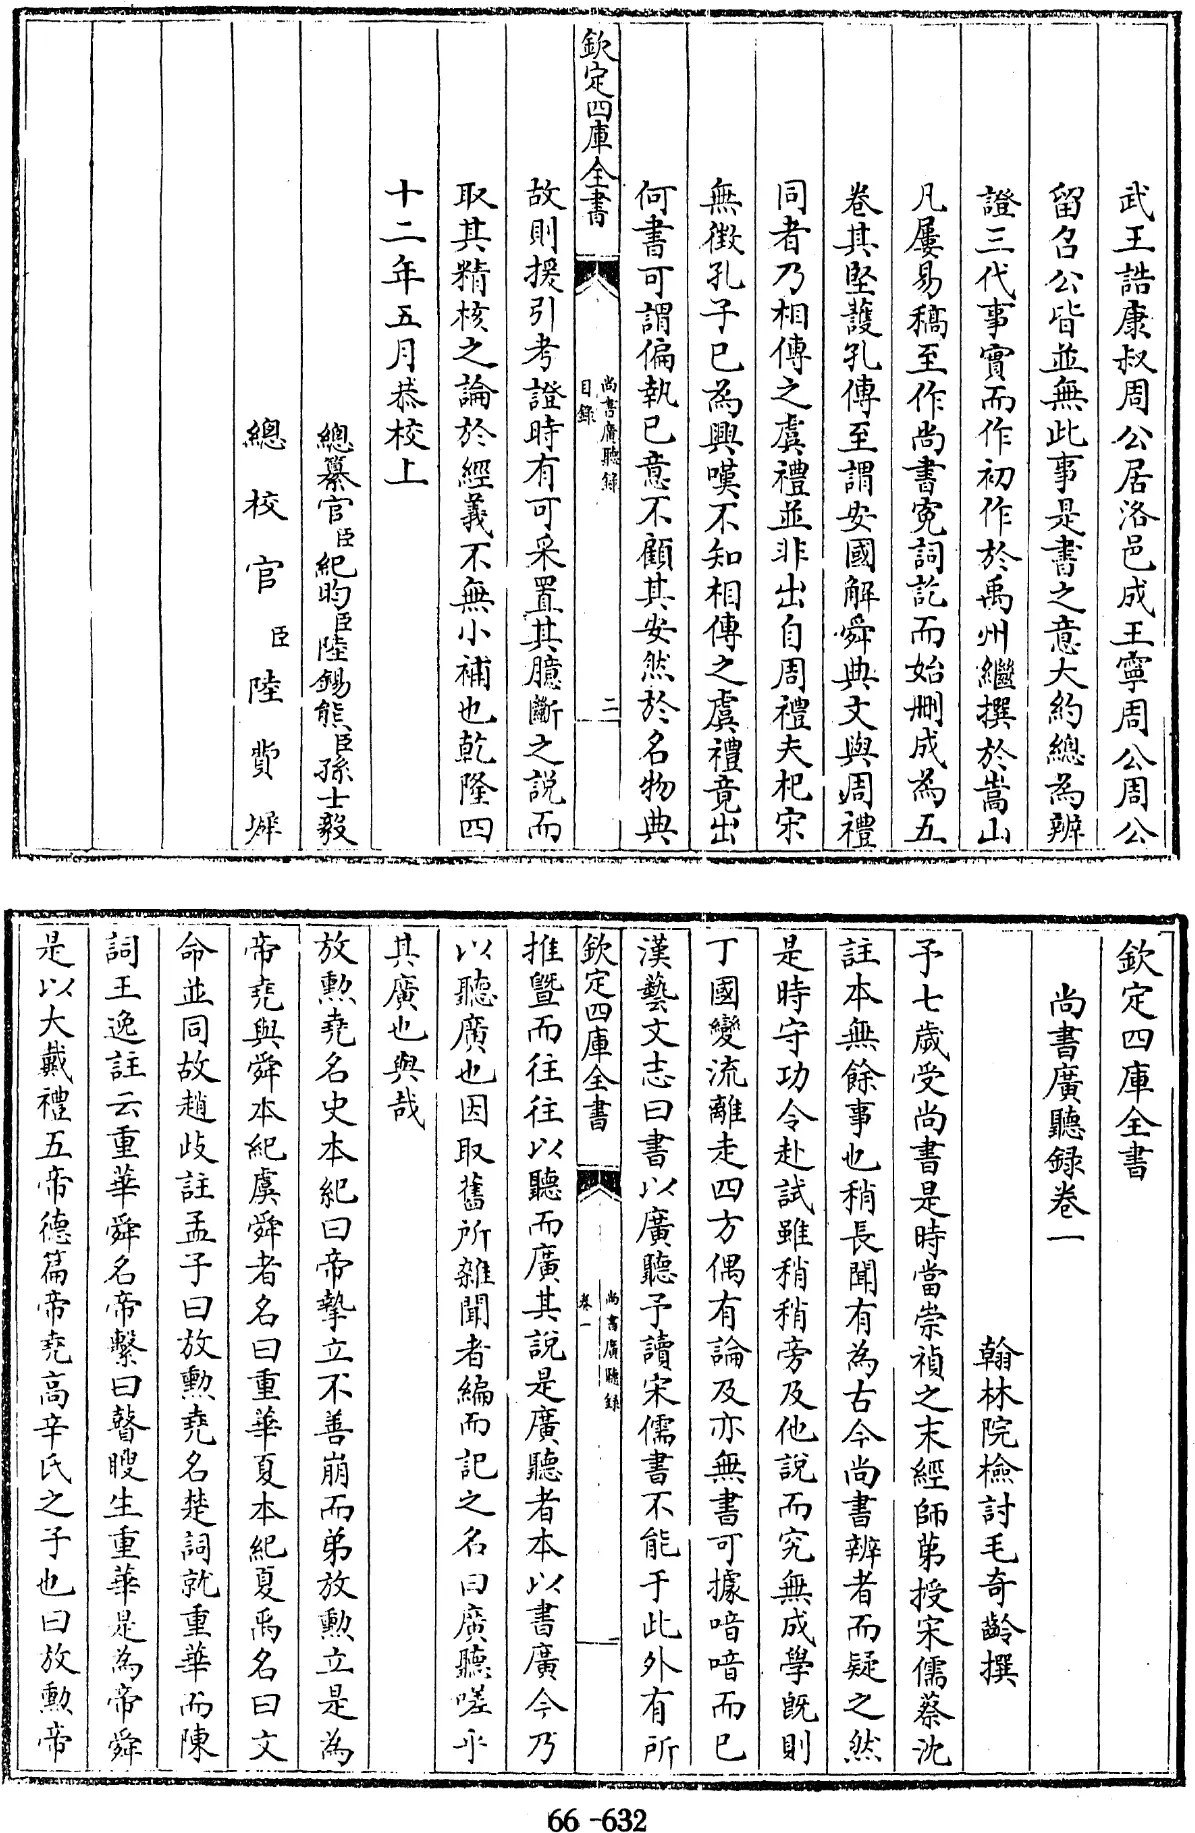 武王誥康叔周公居洛邑成王寧周公周公
留召公皆並無此事是書之意大約總為辨
證三代事實而作初作於禹州繼撰於嵩山
凡屢易稿至作尚書寃詞訖而始刪成為五
卷其堅護孔傳至謂安國解舜典文與周禮
同者乃相傳之虞禮並非出自周禮夫杞宋
無徴孔子已為興嘆不知相傳之虞禮竟出
何書可謂偏執已意不顧其安然於名物典
欽定四庫全書
尚書廣聽録
目録
二
故則援引考證時有可采置其臆斷之説而
取其精核之論於經義不無小補也乾隆四
十二年五月恭校上
總纂官臣紀昀臣陸錫熊臣孫士毅
總校官臣陸費墀
欽定四庫全書
尚書廣聽録卷一
翰林院檢討毛奇齡撰
予七歲受尚書是時當崇禎之末經師第授宋儒蔡沈
註本無餘事也稍長聞有為古今尚書辨者而疑之然
是時守功令赴試雖稍稍旁及他說而究無成學既則
丁國變流離走四方偶有論及亦無書可據喑喑而已
漢藝文志曰書以廣聽予讀宋儒書不能于此外有所
欽定四庫全書
尚書廣聽録
卷一
一
推暨而往往以聽而廣其説是廣聽者本以書廣今乃
以聽廣也因取舊所雜聞者編而記之名曰廣聽嗟乎
其廣也與哉
放勲堯名史本紀曰帝摯立不善崩而弟放勲立是為
帝堯與舜本紀虞舜者名曰重華夏本紀夏禹名曰文
命並同故趙歧註孟子曰放勲堯名楚詞就重華而陳
詞王逸註云重華舜名帝繫曰瞽瞍生重華是為帝舜
是以大戴禮五帝德篇帝堯高辛氏之子也曰放勲帝
66-632